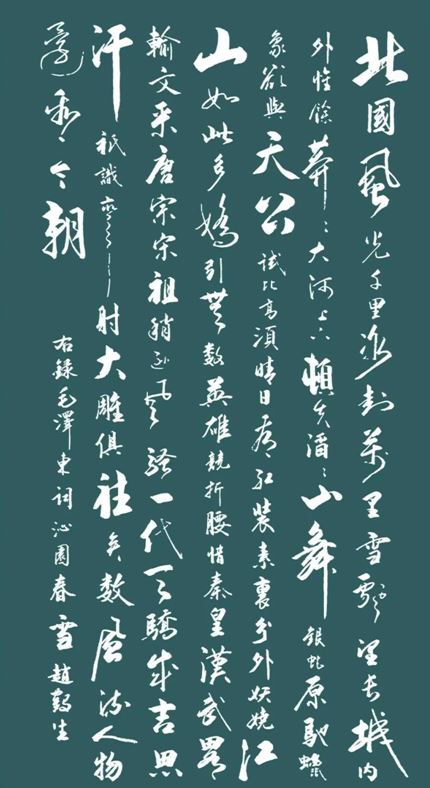 北國風光千里冰封萬里雪飄望長城内
外惟餘莽〻大河上下頓失滔〻山舞銀蛇原馳蠟
象欲與天公試比高須晴日看紅裝素裹分外妖嬈江
山如此多嬌引無數英雄競折腰惜秦皇漢武畧
輸文采唐宗宋祖稍遜風騷一代天驕成吉思
汗祇識彎弓射大雕俱往矣数風流人物
還看今朝
右錄毛澤東詞沁園春雪趙生